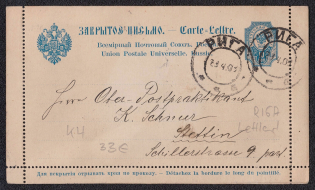 ЗАКРЫТОЕ ПИСЬМО. — Carte-Lettre.
Всемірный Почтовый Союз. Россія.
Union Postale Universelle. Russie.
РИГА
23.4.01
РИГА
4.01
Herrn Ober-Postpraktikant
K. Schmer
Stettin
Schillerstrasse 9 part
RIGA
44
33€
Для вскрытія отрывать края по проколу. — Détachez la bordure le long du pointillé.